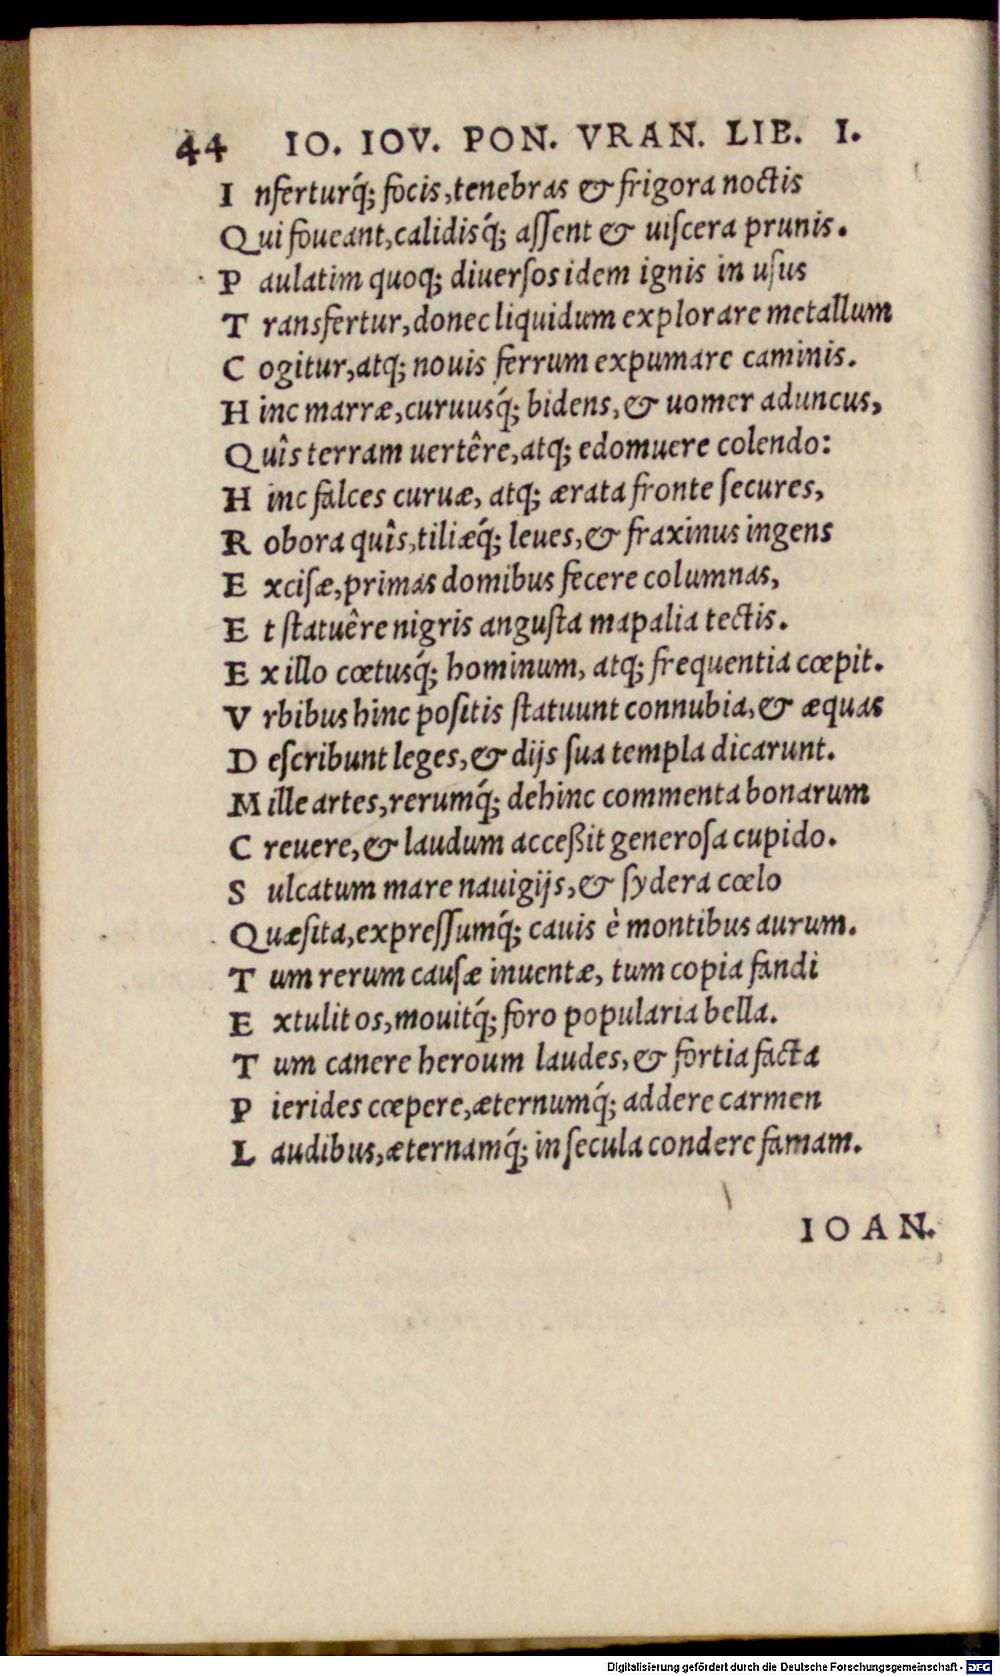 44 IO. IOV. PON. VRAN. LIB. I.
I nferturq́; focis, tenebras & frigora noctis
Q ui foueant, calidisq́; aſſent & uiſcera prunis.
P aulatim quoq; diuerſos idem ignis in uſus
T ransfertur, donec liquidum explorare metallum
C ogitur, atq; nouis ferrum expumare caminis.
H inc marræ, curuusq́; bidens, & uomer aduncus,
Q uîs terram uertêre, atq; edomuere colendo:
H inc falces curuæ, atq; ærata fronte ſecures,
R obora quîs, tiliæq́; leues, & fraxinus ingens
E xciſæ, primas domibus fecere columnas,
E t ſtatuêre nigris anguſta mapalia tectis.
E x illo cœtusq́; hominum, atq; frequentia cœpit.
V rbibus hinc poſitis ſtatuunt connubia, & æquas
D eſcribunt leges, & dijs ſua templa dicarunt.
M ille artes, rerumq́; dehinc commenta bonarum
C reuere, & laudum acceßit generoſa cupido.
S ulcatum mare nauigijs, & ſydera cœlo
Q uæſita, expreſſumq́; cauis è montibus aurum.
T um rerum cauſæ inuentæ, tum copia fandi
E xtulit os, mouitq́; foro popularia bella.
T um canere heroum laudes, & fortia facta
P ierides cœpere, æternumq́; addere carmen
L audibus, æternamq́; in ſecula condere famam.
IOAN.
Digitalisierung gefördert durch die Deutsche Forschungsgemeinschaft - DFG